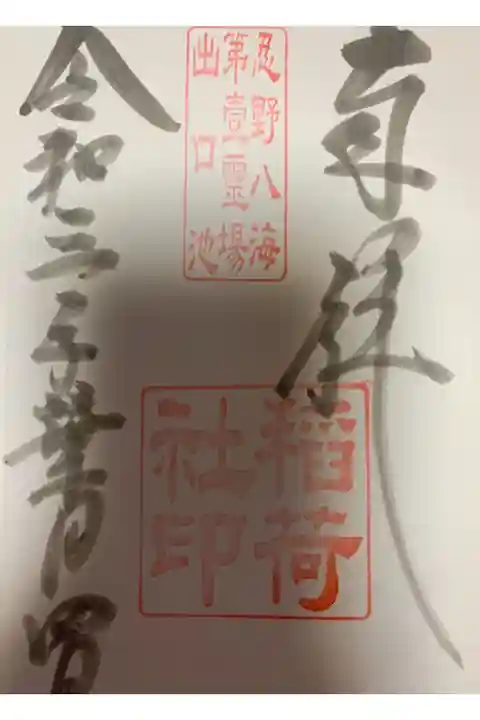 奉拝
忍野八海
第壹霊場
出口池
稲荷
社印
令和三年葉月四日